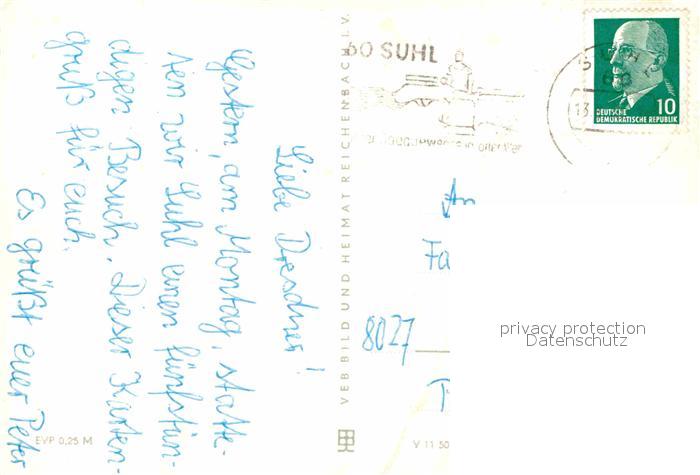 Liebe Dresdner!
Gestern, am Montag, statte-
ten wir Suhl einen fünfstün-
digen Besuch. Dieser Karten-
gruß für euch.
Es grüßt euer Peter
EVP 0,25 M
VEB BILD UND HEIMAT REICHENBACH I. V.
V 11 50
60 SUHL
13
10
DEUTSCHE
DEMOKRATISCHE REPUBLIK
An
Fa
8027
privacy protection
Datenschutz